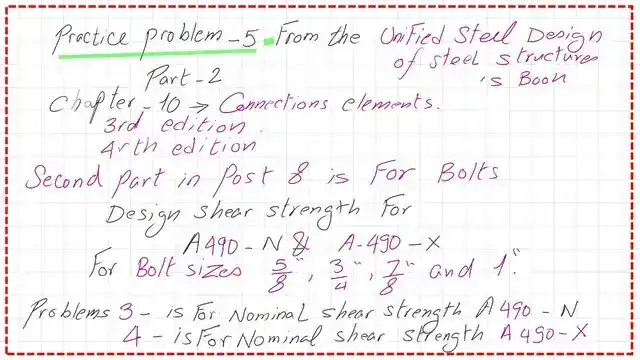 Practice problem - 5. From the Unified Steel Design
of steel structures
's Book
Part-2
Chapter - 10 → Connections elements.
3rd edition.
4rth edition
Second part in Post 8 is For Bolts
Design shear strength For
A490-N & A-490-X
For Bolt sizes 5/8", 3/4", 7/8" and 1".
Problems 3 - is For Nominal shear strength A490-N
4 - is For Nominal shear strength A490-X